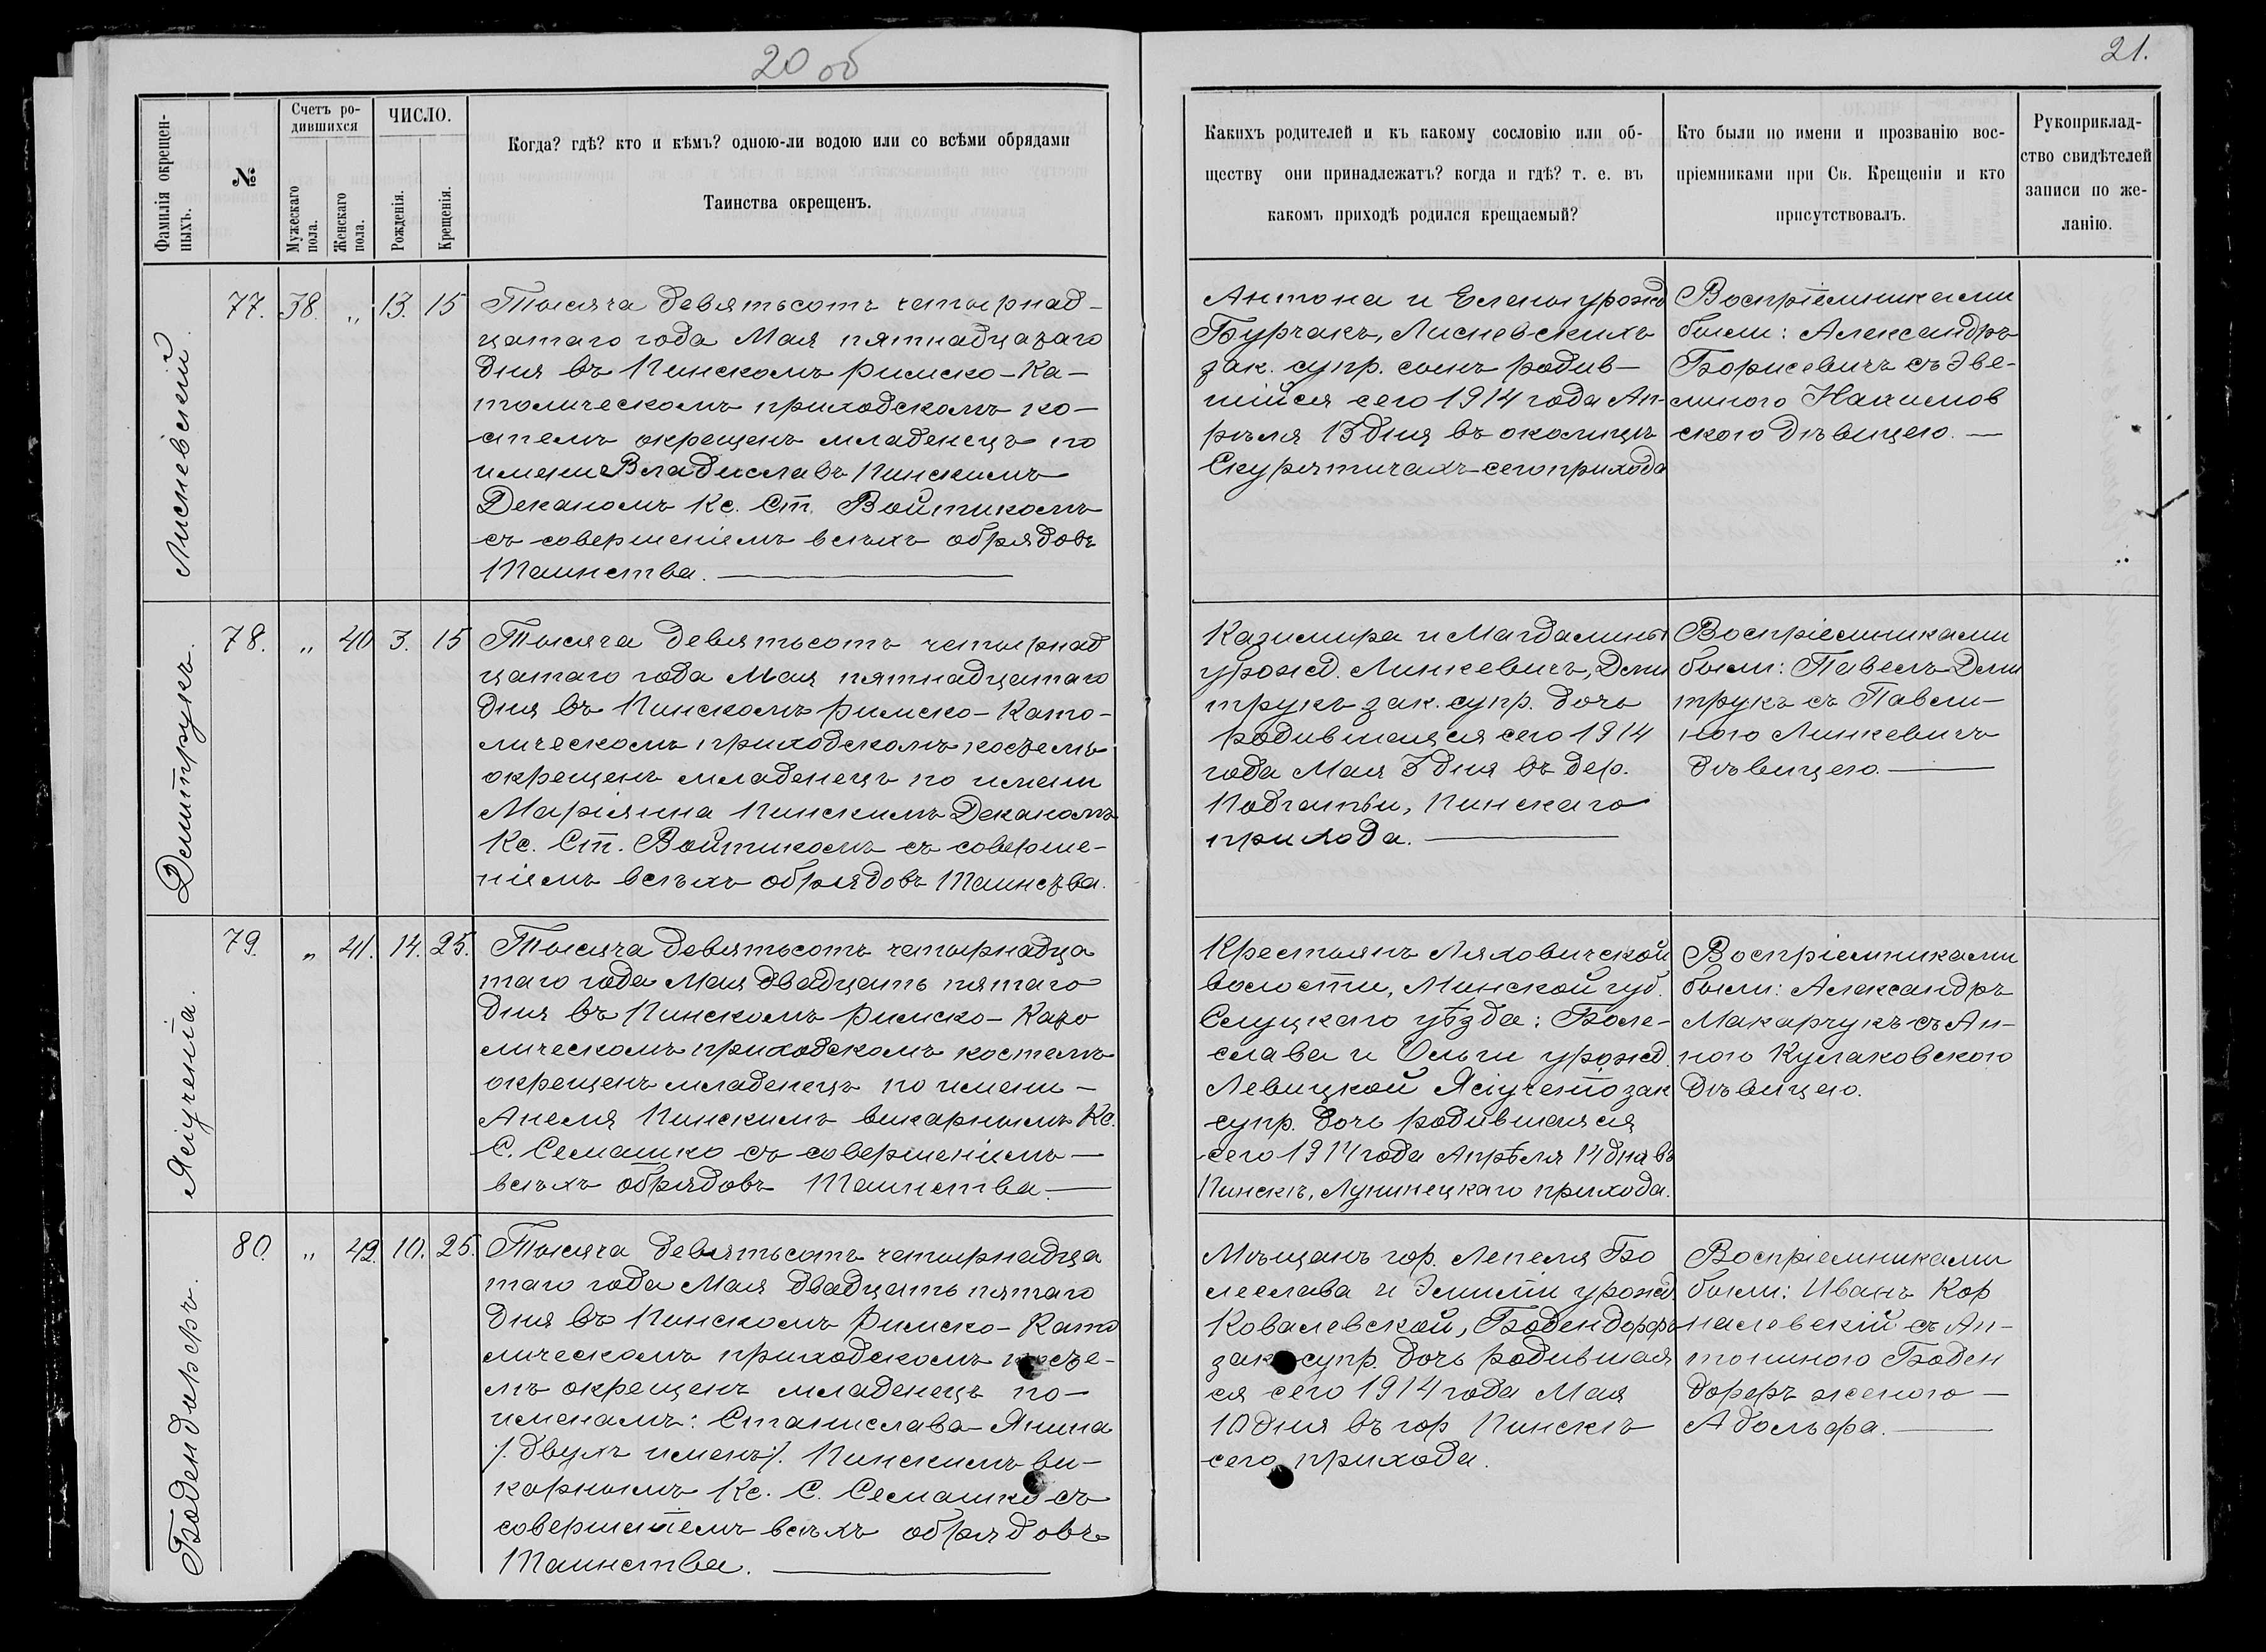 20 об
21.
Фамилія окрещен-
ныхъ.
№
Счетъ ро-
дившихся
Мужескаго
пола.
Женскаго
пола.
ЧИСЛО.
Рожденія.
Крещенія.
Когда? гдѣ? кто и кѣмъ? одною-ли водою или со всѣми обрядами
Таинства окрещенъ.
Какихъ родителей и къ какому сословію или об-
ществу они принадлежатъ? когда и гдѣ? т. е. въ
какомъ приходѣ родился крещаемый?
Кто были по имени и прозванію вос-
пріемниками при Св. Крещеніи и кто
присутствовалъ.
Рукоприклад-
ство свидѣтелей
записи по же-
ланію.
Лисневскій.
77. 38. „ 13. 15
Тысяча девятьсотъ четырнад-
цатаго года Мая пятнадцатаго
дня въ Пинскомъ Римско-Ка-
толическомъ приходскомъ ко-
стелѣ окрещенъ младенецъ по
имени Владиславъ Пинскимъ
Деканомъ Кс. Ст. Войтикомъ
съ совершеніемъ всѣхъ обрядовъ
Таинства.
Антона и Елены урожд
Бурчакъ, Лисневскихъ
зак. супр. сынъ родив-
шійся сего 1914 года Ап-
рѣля 13 дня въ околицѣ
Скурятичахъ сего прихода
Воспріемниками
были: Александръ
Борисевичъ съ Эве-
линою Нахимов
скою дѣвицею.
Дмитрукъ.
78. „ 40 3. 15
Тысяча девятьсотъ четырнад
цатаго года Мая пятнадцатаго
дня въ Пинскомъ Римско-Като-
лическомъ приходскомъ костелѣ
окрещенъ младенецъ по имени
Маріянна Пинскимъ Деканомъ
Кс. Ст. Войтикомъ съ соверше-
ніемъ всѣхъ обрядовъ Таинства.
Казимира и Магдалины
урожд. Линкевичъ, Дми
трукъ зак. супр. дочь
родившаяся сего 1914
года Мая 3 дня въ дер.
Пинскаго
прихода.
Воспріемниками
были: Павелъ Дми
трукъ съ Павли-
ною Линкевичъ
дѣвицею.
Ясюченя.
79. „ 41. 14. 25.
Тысяча девятьсотъ четырнадца
таго года Мая двадцать пятаго
дня въ Пинскомъ Римско-Като
лическомъ приходскомъ костелѣ
окрещенъ младенецъ по имени-
Анеля Пинскимъ викарнымъ Кс.
С. Семашко съ совершеніемъ
всѣхъ обрядовъ Таинства.
Крестьянъ Ляховичской
волости, Минской губ.
Слуцкаго уѣзда: Боле-
слава и Ольги урожд.
Левицкой зак
супр. дочь родившаяся
сего 1914 года Апрѣля 14 дня въ
Пинскѣ, Лунинецкаго прихода.
Воспріемниками
были: Александръ
Макарчукъ съ Ан-
ною Кулаковскою
дѣвицею.
Бодендорфъ.
80. „ 42. 10. 25.
Тысяча девятьсотъ четырнадца
таго года Мая двадцать пятаго
дня въ Пинскомъ Римско-Като
лическомъ приходскомъ косте-
лѣ окрещенъ младенецъ по-
именамъ: Станислава-Янина
/. двухъ именъ/. Пинскимъ ви-
карнымъ Кс. С. Семашко съ
совершеніемъ всѣхъ обрядовъ
Таинства.
Мѣщанъ гор. Лепеля Бо
леслава и Эмиліи урожд.
Ковалевской, Бодендорфъ
зак. супр. дочь родившая
ся сего 1914 года Мая
10 дня въ гор Пинскѣ
сего прихода.
Воспріемниками
были: Иванъ Кор
налевскій съ Ан-
тониною Боден
дорфъ женою-
Адольфа.